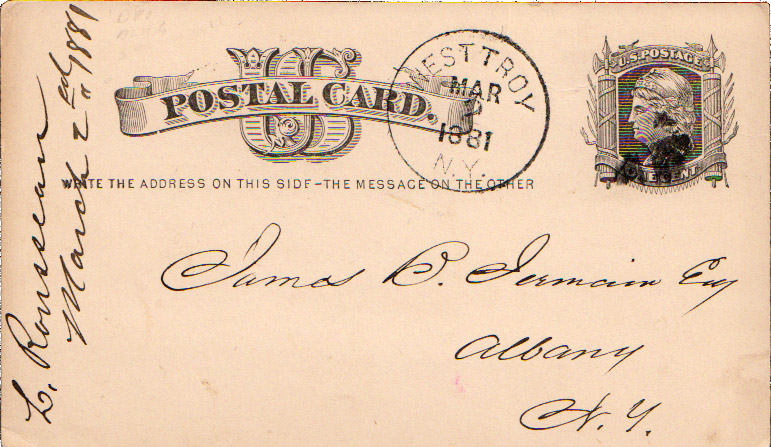 U S
POSTAL CARD.
WEST TROY
MAR
1881
N.Y.
U.S. POSTAGE
ONE CENT
WRITE THE ADDRESS ON THIS SIDE-THE MESSAGE ON THE OTHER
James B. Jermain Esq
Albany
N.Y.
L. Rousseau
March 2nd 1881